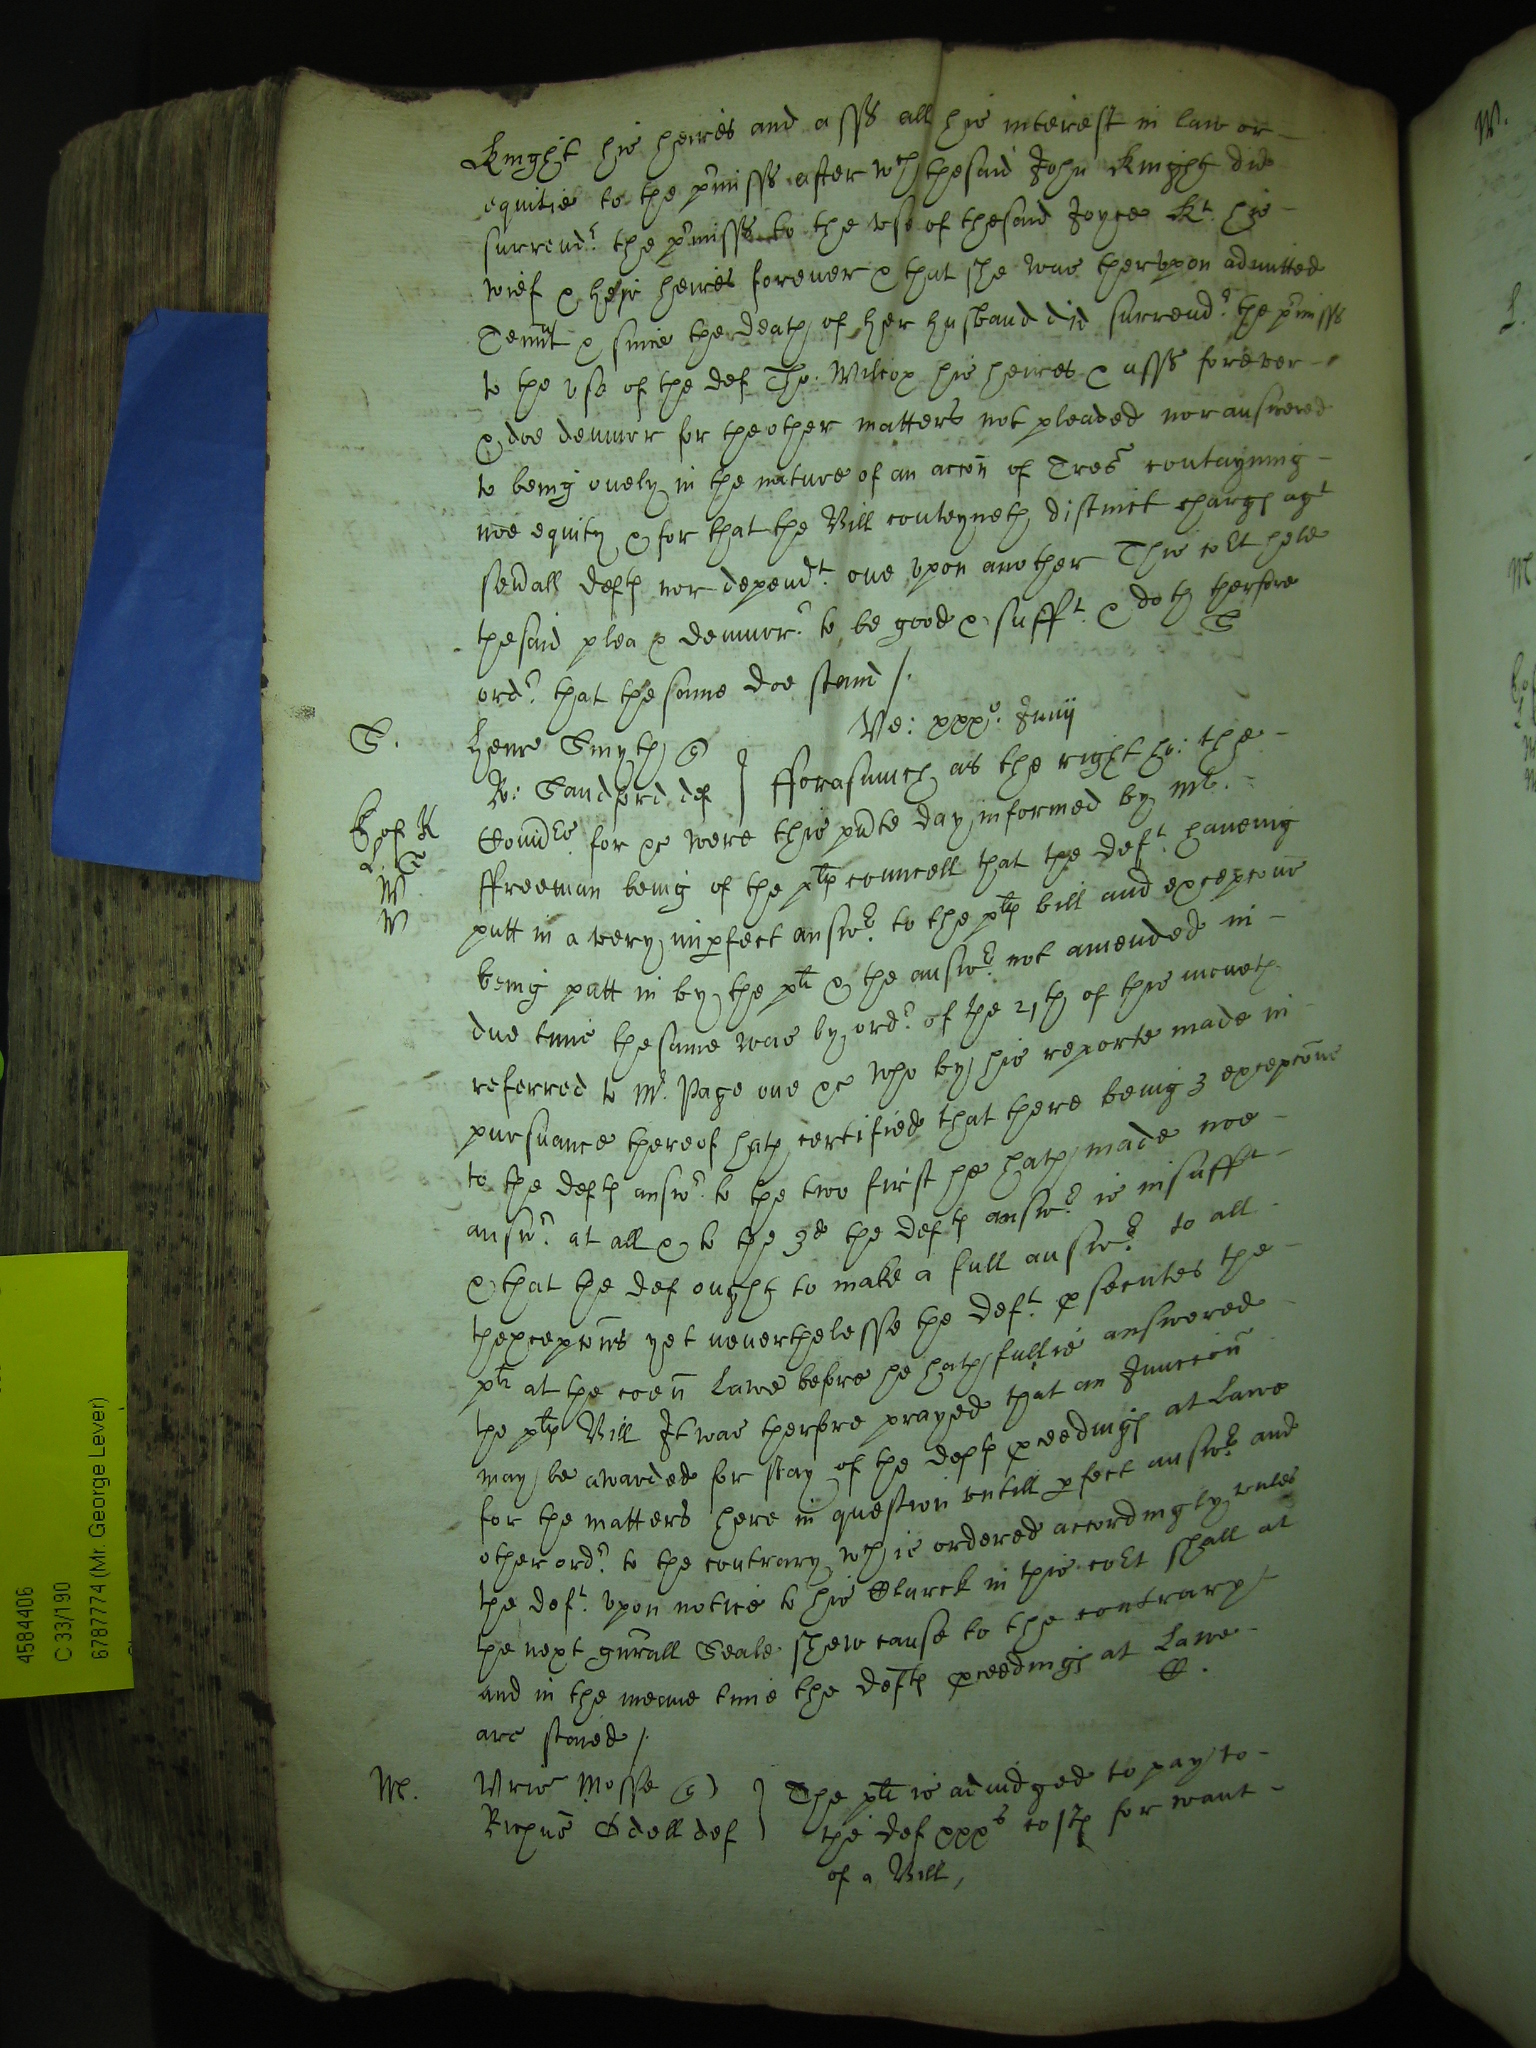 Knight his heires and asss all his interest in law or
equitie to the p'misss after wch thesaid John Knight did
surrend'r the p'misss to the use of thesaid Joyce Kt. his
wief & heir heires forever & that she was therupon admitted
Tennt & since the death of her husband did surrend'r the p'misss
to the use of the def Tho: Wilcox his heires & asss forever
& doe demurr for theother matters not pleaded nor answered
to being onely in the nature of an accon of Tres contayning
noe equity & for that the Bill conteyneth distinct charges agt
sevall defts nor dependt. one upon another This cort held
thesaid plea & demurr' to be good & sufft. & doth therfore
ord'r that thesame doe stand /.
S.
Ve: xxxo. Junij
S.
Henr Smyth q
R: Sandford def } fforasmuch as the right ho: the
L of K
Comrs for &c were this pnte day informed by Mr.
L. C
W
ffreeman being of the plts councell that the deft. haveing
W
putt in a very imperfect answ'r to the plts bill and excepcons
being putt in by the plt & the answ'r not amended in
due time thesame was by ord'r of the 21th of this moneth
referred to Mr. Page one &c who by his reporte made in
pursuance thereof hath certified that there being 3 excepcons
to the defts answ'r to the two first he hath made noe
answ'r at all & to the 3d the defts answ'r is insufft
& that the def ought to make a full answ'r to all
thexcepcons yet neverthelesse the deft. psecutes the
plt at the coen Lawe before he hath fullie answered
the plts Bill It was therfore prayed that an Junccon
may be awarded for stay of the defts pceedings at Lawe
for the matters here in question untill pfect answ'r and
other ord'r to the contrary wch is ordered accordingly unles
the deft. upon notice to his Clarck in this cort shall at
the next gnrall Seale shew cause to the contrary
and in the meane time the defts pceedings at Lawe
are staied /.
C.
M.
Urie Mosse q } The plt is adiudged to pay to
Ricus Odell def } the def xxxs costs for want
of a Bill,
4584406
C 33/190
6787774 (Mr. George Lever)